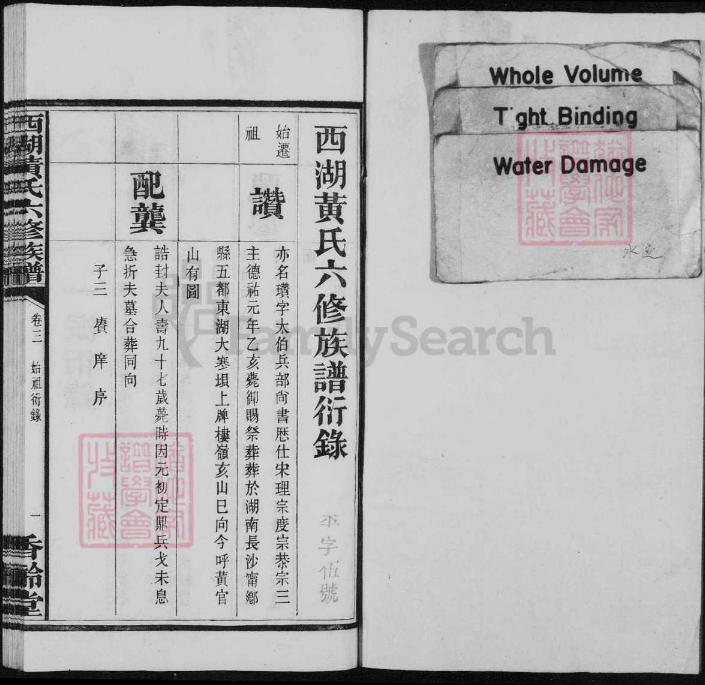 Whole Volume
Tight Binding
Water Damage
西湖黃氏六修族譜衍錄
字伍號
始遷祖
讚
亦名瓚字太伯兵部尚書歷仕宋理宗度宗恭宗三
主德祐元年乙亥薨御賜祭葬葬於湖南長沙甯鄉
縣五都東湖大寒塤上牌樓嶺亥山巳向今呼黃官
山有圖
配龔
誥封夫人壽九十七歲薨時因元初定鼎兵戈未息
急折夫墓合葬同向
子三 賡 庠 序
西湖黃氏六修族譜
卷三 始祖衍錄
一
香齡堂
FamilySearch